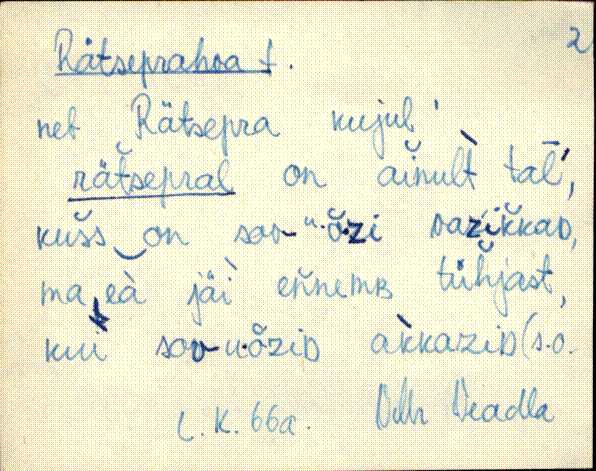 Rätseprahoa t. 2
net Rätsepra kujul
rätsepral on ainult tal̄,
kušs on soo-u·ŏzi vazikkad,
ma eà jäì eñnemb tühjast,
kui soo-u·ŏzid àkkazid (s.o.
L.K. 66a. Veadla